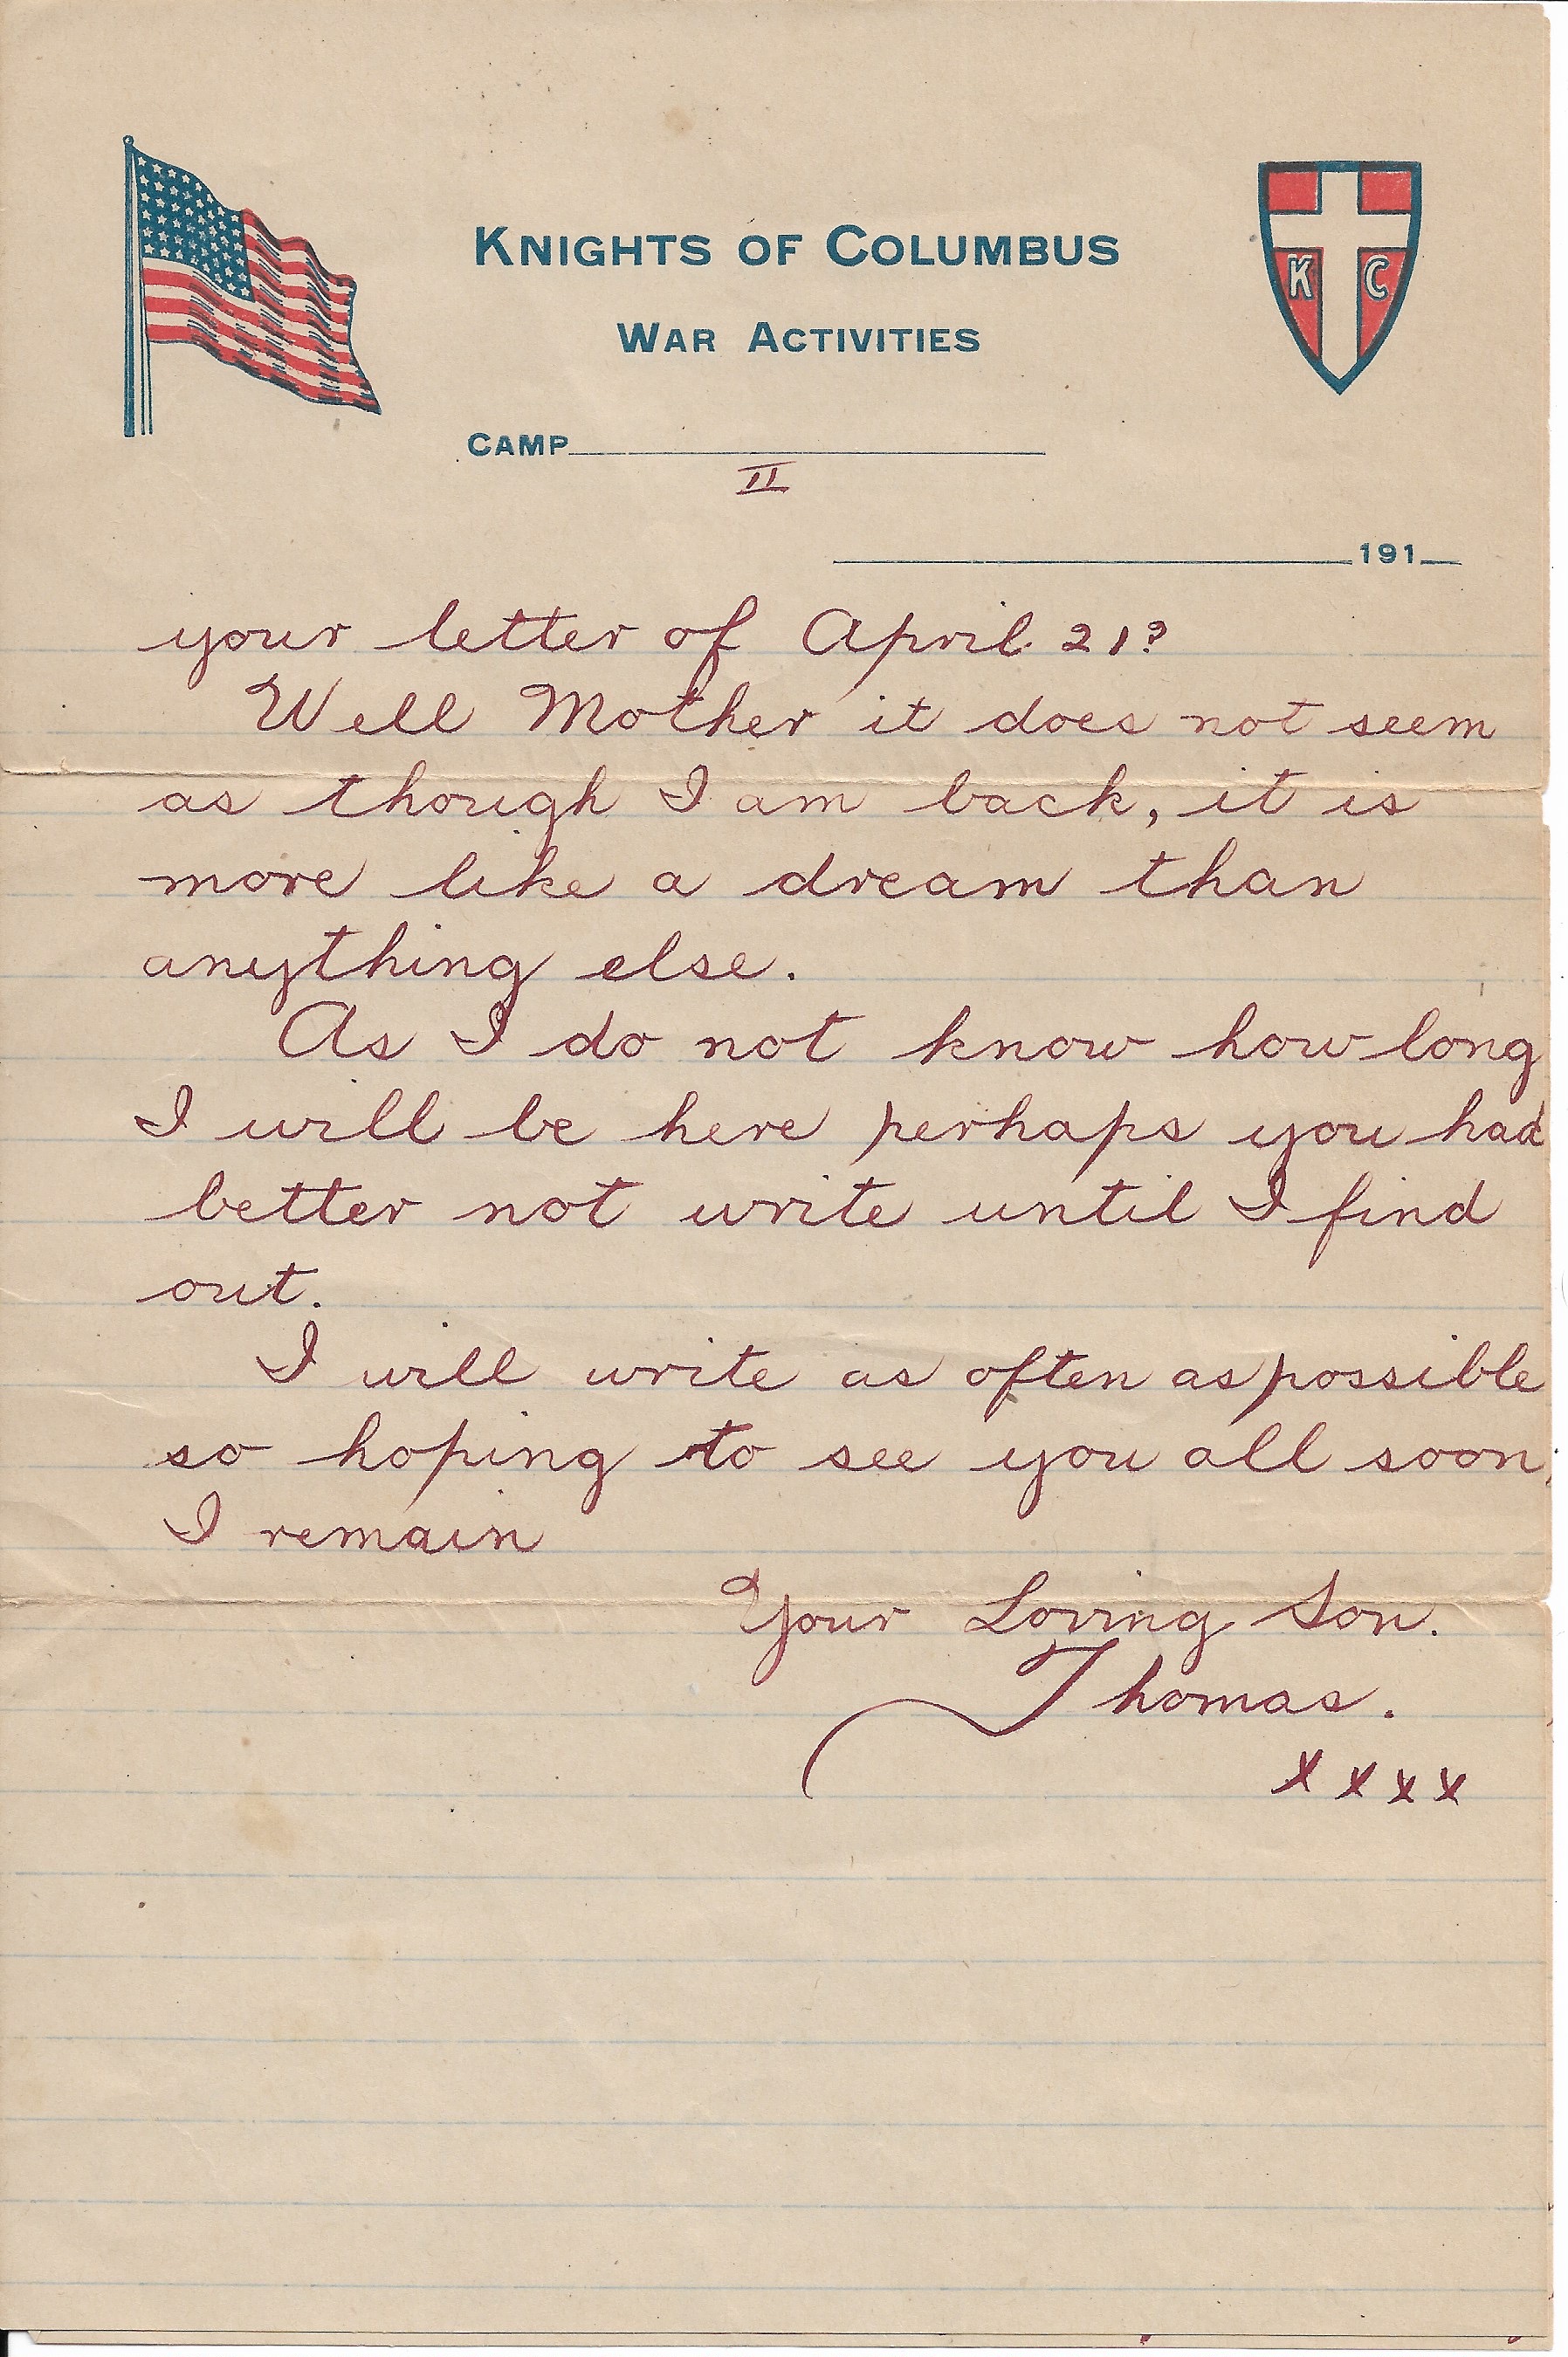 KNIGHTS OF COLUMBUS
WAR ACTIVITIES
K C
CAMP
II
191
your letter of April 21?
Well Mother it does not seem
as though I am back, it is
more like a dream than
anything else.
As I do not know how long
I will be here perhaps you had
better not write until I find
out.
I will write as often as possible
so hoping to see you all soon,
I remain
Your Loving Son.
Thomas.
x x x x